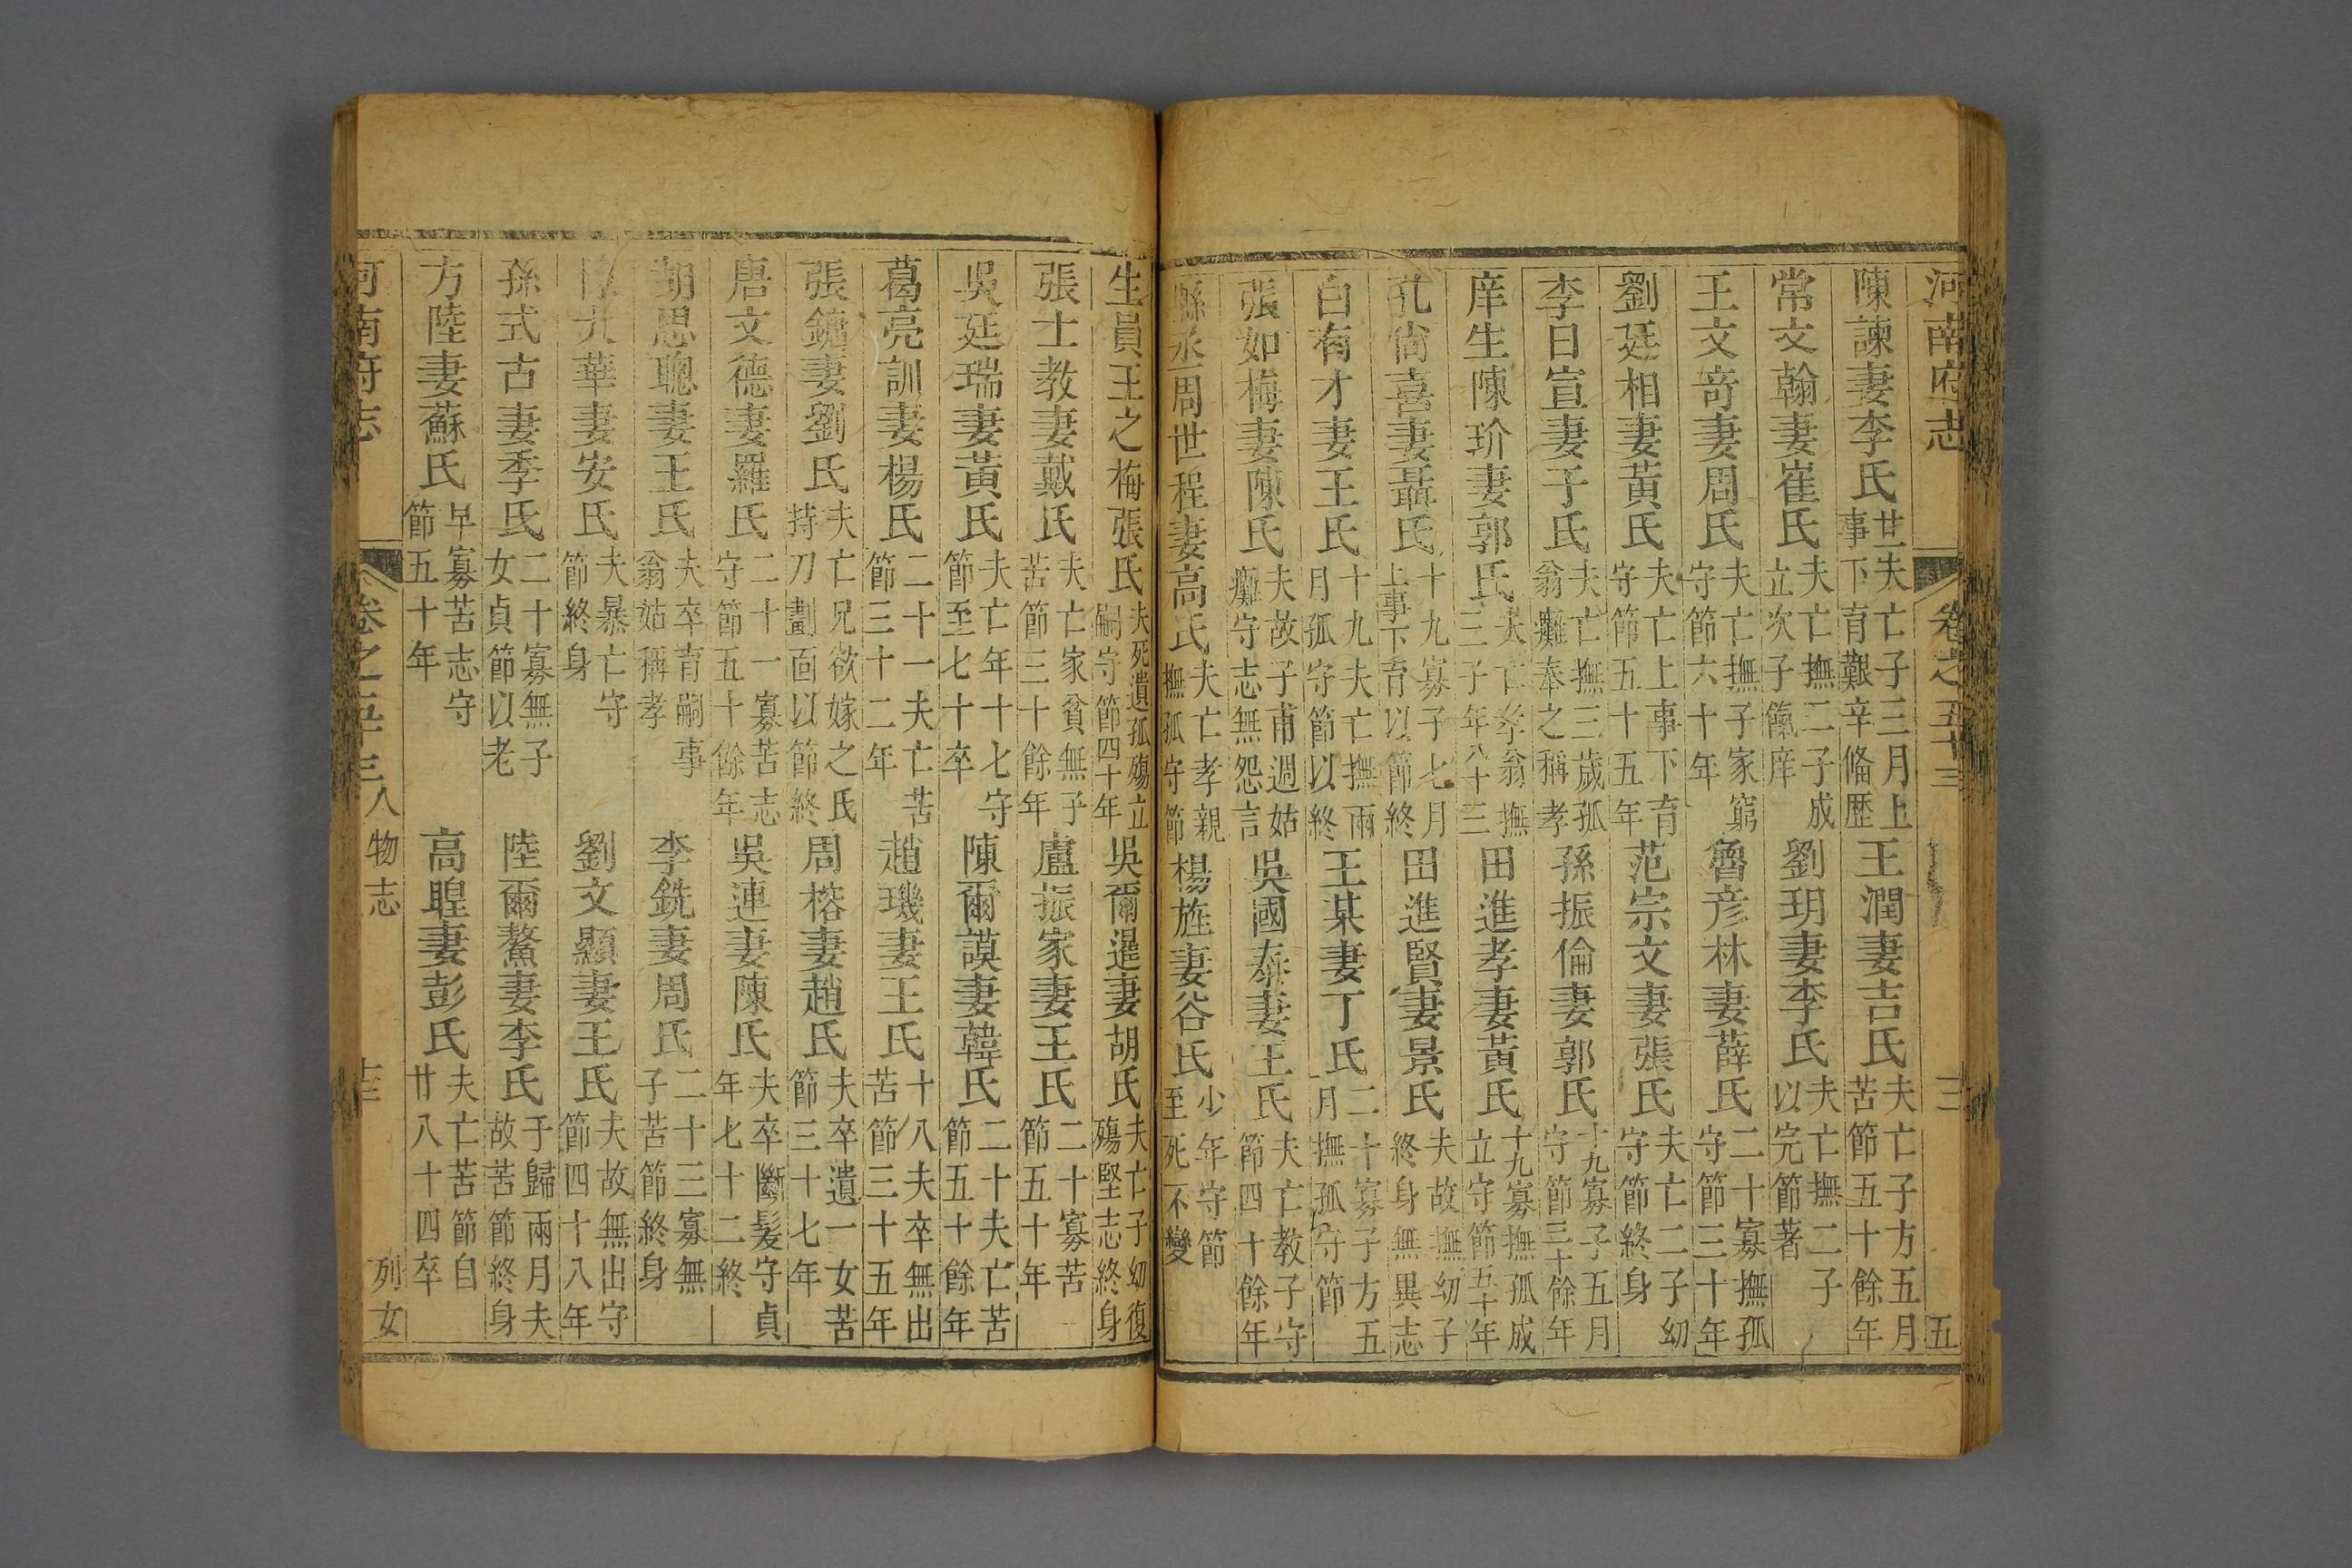 河南府志 卷之五十三 五
陳諫妻李氏 夫亡子三月上事下育艱辛偹歷 王潤妻吉氏 夫亡子方五月苦節五十餘年
常文翰妻崔氏 夫亡撫二子成立次子餼庠 劉玥妻李氏 夫亡撫二子以完節著
王文竒妻周氏 夫亡撫子家窮守節六十年 魯彦林妻薛氏 二十寡撫孤守節三十年
劉廷相妻黃氏 夫亡上事下育守節五十五年 范宗文妻張氏 夫亡二子幼守節終身
李日宣妻于氏 夫亡撫三歲孤翁癱奉之稱孝 孫振倫妻郭氏 十九寡子五月守節三十餘年
庠生陳玠妻郭氏 夫亡孝翁撫三子年八十三 田進孝妻黃氏 十九寡撫孤成立守節五十年
孔尙喜妻聶氏 十九寡子七月上事下育以節終 田進賢妻景氏 夫故撫幼子終身無異志
白有才妻王氏 十九夫亡撫兩月孤守節以終 王某妻丁氏 二十寡子方五月撫孤守節
張如梅妻陳氏 夫故子甫週姑癱守志無怨言 吳國泰妻王氏 夫亡教子守節四十餘年
縣丞周世程妻高氏 夫亡孝親撫孤守節 楊旌妻谷氏 少年守節至死不變
生員王之梅張氏 夫死遺孤殤立嗣守節四十年 吳爾暹妻胡氏 夫亡子幼復殤堅志終身
張士教妻戴氏 夫亡家貧無子苦節三十餘年 盧振家妻王氏 二十寡苦節五十年
吳廷瑞妻黃氏 夫亡年十七守節至七十卒 陳爾謨妻韓氏 二十夫亡苦節五十餘年
葛亮訓妻楊氏 二十一夫亡苦節三十二年 趙璣妻王氏 十八夫卒無出苦節三十五年
張鏕妻劉氏 夫亡兄欲嫁之氏持刀劃面以節終 周榕妻趙氏 夫卒遺一女苦節三十七年
唐文德妻羅氏 二十一寡苦志守節五十餘年 吳連妻陳氏 夫卒斷髮守貞年七十二終
胡思聰妻王氏 夫卒育嗣事翁姑稱孝 李銑妻周氏 二十三寡無子苦節終身
九華妻安氏 夫暴亡守節終身 劉文顯妻王氏 夫故無出守節四十八年
孫式古妻季氏 二十寡無子女貞節以老 陸爾鰲妻李氏 于歸兩月夫故苦節終身
方陸妻蘇氏 早寡苦志守節五十年 高瞍妻彭氏 夫亡苦節自廿八十四卒
河南府志 卷之五十三 人物志 列女